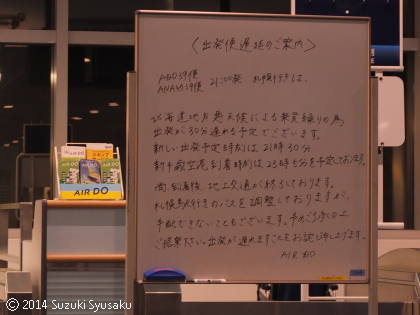 〈出発便遅延のご案内〉
ADO39便
21:00発 札幌行きは、
北海道地方悪天候による乗員繰りの為
出発が30分遅れる予定でございます。
新しい出発予定時刻は21時30分
新千歳空港到着時刻は23時5分を予定しております。
尚、到着後 地上交通が終了しております。
札幌駅行きのバスを調整しておりますが、
手配できないこともございます。予めご了承の上
ご搭乗下さい。出発が遅れますことをお詫び申し上げます。
AIR DO
AIR DO
© 2014 Suzuki Syusaku